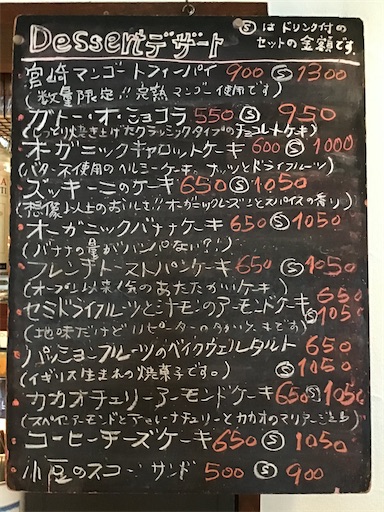 Dessertデザート
Ⓢはドリンク付の
セットの金額です。
宮崎マンゴートフィーパイ 900 Ⓢ 1300
(数量限定!! 完熟マンゴー使用です)
ガトー・オ・ショコラ 550 Ⓢ 950
(しっとり焼き上げたクラッシックタイプのチョコレートケーキ)
オーガニックキャロットケーキ 600 Ⓢ 1000
(バター不使用のヘルシーケーキ。ナッツとドライフルーツ)
ズッキーニのケーキ 650 Ⓢ 1050
(想像以上のおいしさ!! オーガニックレーズンとスパイスの香り)
オーガニックバナナケーキ 650 Ⓢ 1050
(バナナの量がハンパない?!)
フレンチトーストパンケーキ 650 Ⓢ 1050
(オープン以来人気のあたたかいケーキ)
セミドライフルーツと汁モンのアーモンドケーキ 650
Ⓢ 1050
(地味だけどリピーターの多いケーキです)
パッションフルーツのベイクウェルタルト 650
(イギリス生まれの焼菓子です。) Ⓢ 1050
カカオチェリーアーモンドケーキ 650 Ⓢ 1050
(スペインアーモンドとチェリーとカカオのマリアージュ)
コーヒーチーズケーキ 650 Ⓢ 1050
小豆のスコーンサンド 500 Ⓢ 900